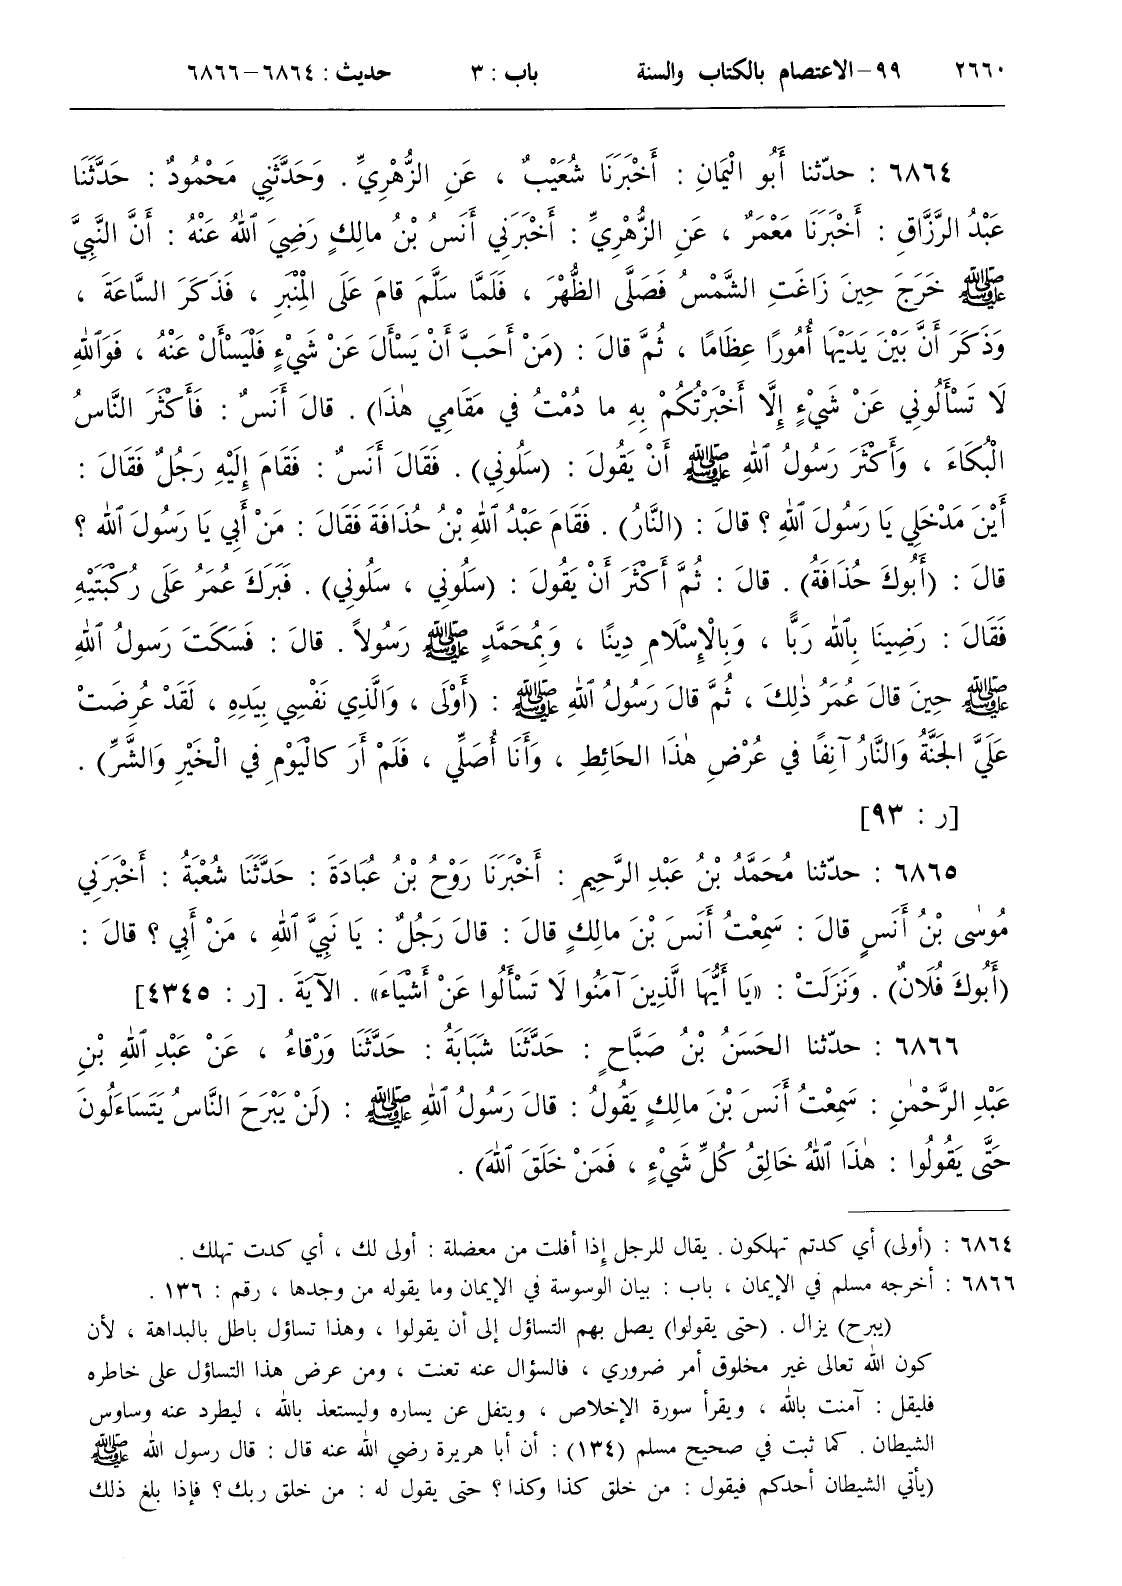 ٢٦٦٠ ٩٩-الاعتصام بالكتاب والسنة باب : ٣ حديث : ٦٨٦٤-٦٨٦٦
٦٨٦٤ : حدّثنا أَبُو الْيَمَانِ : أَخْبَرَنَا شُعَيْبٌ ، عَنِ الزُّهْرِيِّ . وَحَدَّثَنِي مَحْمُودٌ : حَدَّثَنَا
عَبْدُ الرَّزَّاقِ : أَخْبَرَنَا مَعْمَرٌ ، عَنِ الزُّهْرِيِّ : أَخْبَرَنِي أَنَسُ بْنُ مالِكٍ رَضِيَ ٱللهُ عَنْهُ : أَنَّ النَّبِيَّ
ﷺ خَرَجَ حِينَ زَاغَتِ الشَّمْسُ فَصَلَّى الظُّهْرَ ، فَلَمَّا سَلَّمَ قامَ عَلَى الْمِنْبَرِ ، فَذَكَرَ السَّاعَةَ ،
وَذَكَرَ أَنَّ بَيْنَ يَدَيْهَا أُمُورًا عِظَامًا ، ثُمَّ قالَ : (مَنْ أَحَبَّ أَنْ يَسْأَلَ عَنْ شَيْءٍ فَلْيَسْأَلْ عَنْهُ ، فَوَٱللهِ
لَا تَسْأَلُونِي عَنْ شَيْءٍ إِلَّا أَخْبَرْتُكُمْ بِهِ ما دُمْتُ في مَقَامِي هٰذَا) . قالَ أَنَسٌ : فَأَكْثَرَ النَّاسُ
الْبُكَاءَ ، وَأَكْثَرَ رَسُولُ ٱللهِ ﷺ أَنْ يَقُولَ : (سَلُونِي) . فَقَالَ أَنَسٌ : فَقَامَ إِلَيْهِ رَجُلٌ فَقَالَ :
أَيْنَ مَدْخَلِي يَا رَسُولَ ٱللهِ ؟ قالَ : (النَّارُ) . فَقَامَ عَبْدُ ٱللهِ بْنُ حُذَافَةَ فَقَالَ : مَنْ أَبِي يَا رَسُولَ ٱللهِ ؟
قالَ : (أَبُوكَ حُذَافَةُ) . قالَ : ثُمَّ أَكْثَرَ أَنْ يَقُولَ : (سَلُونِي ، سَلُونِي) . فَبَرَكَ عُمَرُ عَلَى رُكْبَتَيْهِ
فَقَالَ : رَضِينَا بِٱللهِ رَبًّا ، وَبِالْإِسْلَامِ دِينًا ، وَبِمُحَمَّدٍ ﷺ رَسُولاً . قالَ : فَسَكَتَ رَسُولُ ٱللهِ
ﷺ حِينَ قالَ عُمَرُ ذٰلِكَ ، ثُمَّ قالَ رَسُولُ ٱللهِ ﷺ : (أَوْلَى ، وَالَّذِي نَفْسِي بِيَدِهِ ، لَقَدْ عُرِضَتْ
عَلَيَّ الجَنَّةُ وَالنَّارُ آنِفًا في عُرْضِ هٰذَا الحَائِطِ ، وَأَنَا أُصَلِّي ، فَلَمْ أَرَ كالْيَوْمِ فِي الْخَيْرِ وَالشَّرِّ) .
[ر : ٩٣]
٦٨٦٥ : حدّثنا مُحَمَّدُ بْنُ عَبْدِ الرَّحِيمِ : أَخْبَرَنَا رَوْحُ بْنُ عُبَادَةَ : حَدَّثَنَا شُعْبَةُ : أَخْبَرَنِي
مُوسٰى بْنُ أَنَسٍ قالَ : سَمِعْتُ أَنَسَ بْنَ مالِكٍ قالَ : قالَ رَجُلٌ : يَا نَبِيَّ ٱللهِ ، مَنْ أَبِي ؟ قالَ :
(أَبُوكَ فُلَانٌ) . وَنَزَلَتْ : «يَا أَيُّهَا الَّذِينَ آمَنُوا لَا تَسْأَلُوا عَنْ أَشْيَاءَ» . الآيَةَ . [ر : ٤٣٤٥]
٦٨٦٦ : حدّثنا الحَسَنُ بْنُ صَبَّاحٍ : حَدَّثَنَا شَبَابَةُ : حَدَّثَنَا وَرْقاءُ ، عَنْ عَبْدِ ٱللهِ بْنِ
عَبْدِ الرَّحْمٰنِ : سَمِعْتُ أَنَسَ بْنَ مالِكٍ يَقُولُ : قالَ رَسُولُ ٱللهِ ﷺ : (لَنْ يَبْرَحَ النَّاسُ يَتَسَاءَلُونَ
حَتَّى يَقُولُوا : هٰذَا ٱللهُ خَالِقُ كُلِّ شَيْءٍ ، فَمَنْ خَلَقَ ٱللهَ) .
٦٨٦٤ : (أولى) أي كدتم تهلكون . يقال للرجل إذا أفلت من معضلة : أولى لك ، أي كدت تهلك .
٦٨٦٦ : أخرجه مسلم في الإيمان ، باب : بيان الوسوسة في الإيمان وما يقوله من وجدها ، رقم : ١٣٦ .
(يبرح) يزال . (حتى يقولوا) يصل بهم التساؤل إلى أن يقولوا ، وهذا تساؤل باطل بالبداهة ، لأن
كون الله تعالى غير مخلوق أمر ضروري ، فالسؤال عنه تعنت ، ومن عرض هذا التساؤل على خاطره
فليقل : آمنت بالله ، ويقرأ سورة الإخلاص ، ويتفل عن يساره وليستعذ بالله ، ليطرد عنه وساوس
الشيطان . كما ثبت في صحيح مسلم (١٣٤) : أن أبا هريرة رضي الله عنه قال : قال رسول الله ﷺ
(يأتي الشيطان أحدكم فيقول : من خلق كذا وكذا ؟ حتى يقول له : من خلق ربك ؟ فإذا بلغ ذلك